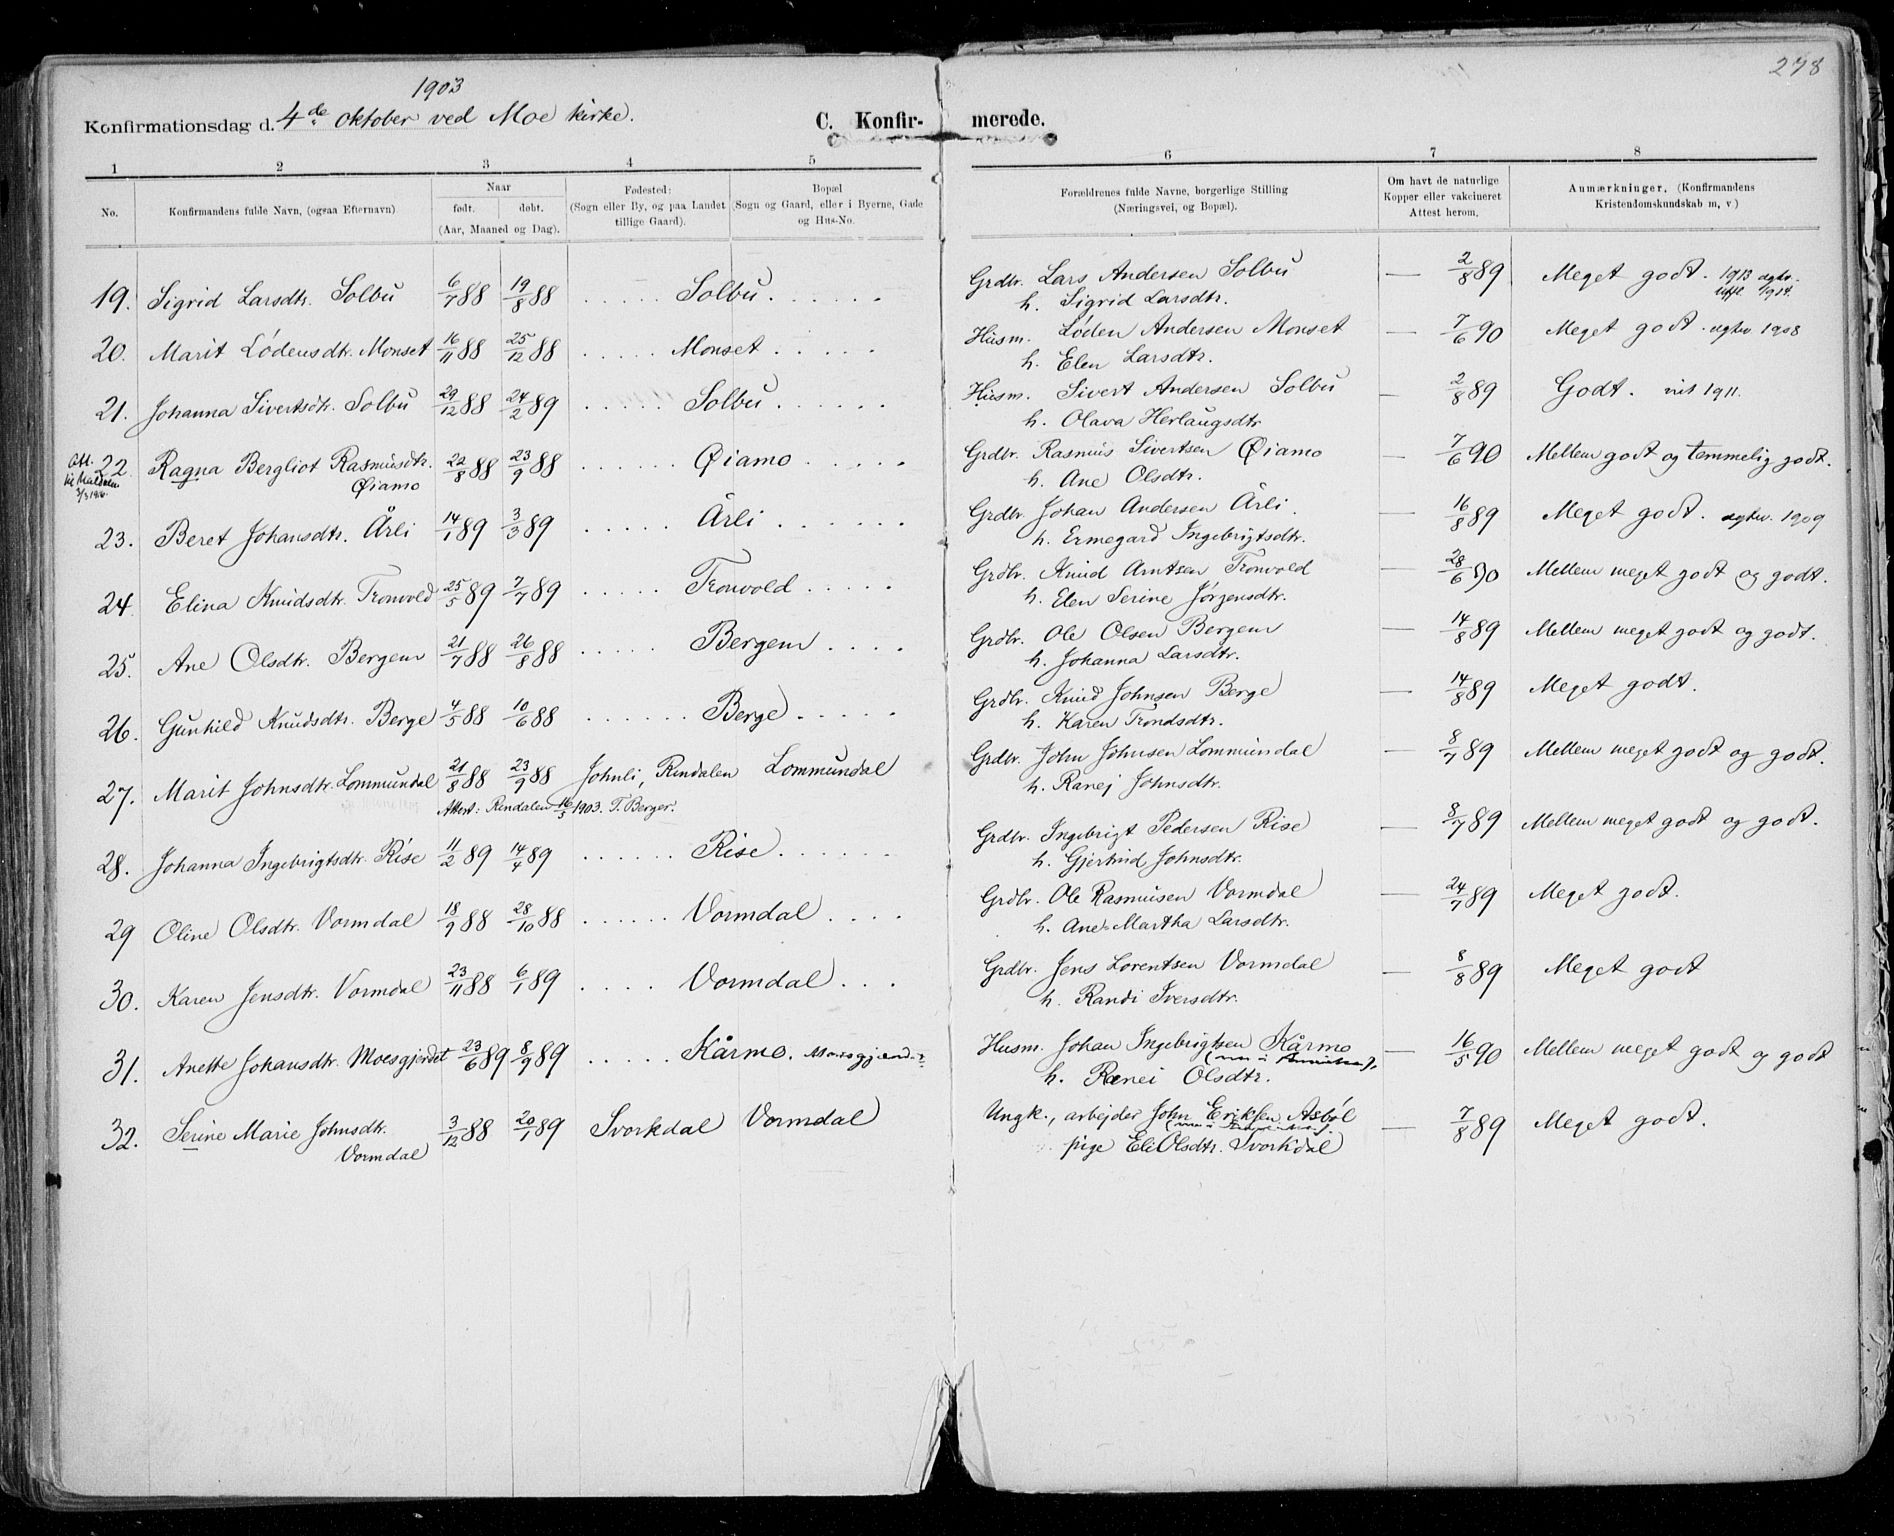 1903
278
Konfirmationsdag d. 4de oktober ved Moe kirke.
C. Konfirmerede.
1 2 3 4 5 6 7 8
No.
Konfirmandens fulde Navn, (ogsaa Efternavn)
Naar
født. døbt.
(Aar, Maaned og Dag).
Fødested:
(Sogn eller By, og paa Landet
tillige Gaard).
Bopæl
(Sogn og Gaard, eller i Byerne, Gade
og Hus-No.
Forældrenes fulde Navne, borgerlige Stilling
(Næringsvei, og Bopæl).
Om havt de naturlige
Kopper eller vakcineret
Attest herom.
Anmærkninger, (Konfirmandens
Kristendomskundskab m, v)
19. Sigrid Larsdtr. Solbu 6/7 88 19/8 88 ..... Solbu ..... Grdbr. Lars Andersen Solbu — 2/8 89 Meget godt. 1913
h. Sigrid Larsdtr. 1914.
20. Marit Lødensdtr. Monset 16/11 88 25/12 88 ..... Monset ..... Husm. Løden Andersen Monset — 7/6 90 Meget godt. 1908
h. Elen Larsdtr.
21. Johanna Sivertsdtr. Solbu 29/12 88 24/2 89 ..... Solbu ..... Husm. Sivert Andersen Solbu — 2/8 89 Godt. 1911.
h. Olava Herlaugsdtr
Att.
22. Ragna Bergliot Rasmusdtr. 22/8 88 23/9 88 ..... Øiamo ..... Grdbr. Rasmus Sivertsen Øiamo — 7/6 90 Mellem godt og temmelig godt.
Øiamo h. Ane Olsdtr.
23. Beret Johansdtr. Årli 14/1 89 3/3 89 ..... Årli ..... Grdbr. Johan Andersen Årli. — 16/8 89 Meget godt. 1909
h. Ermegard Ingebrigtsdtr.
24. Elina Knudsdtr. Tronvold 25/5 89 7/7 89 ..... Tronvold .... Grdbr. Knud Arntsen Tronvold — 28/6 90 Mellem meget godt og godt.
h. Elen Serine Jörgensdtr.
25. Ane Olsdtr. Bergem 21/7 88 26/8 88 ..... Bergem .... Grdbr. Ole Olsen Bergem — 14/8 89 Mellem meget godt og godt.
h. Johanna Larsdtr.
26. Gunhild Knudsdtr. Berge 4/5 88 10/6 88 ...... Berge ..... Grdbr. Knud Johnsen Berge — 14/8 89 Meget godt.
h. Karen Trondsdtr.
27. Marit Johnsdtr. Lommundal 21/8 88 23/9 88 Johnli, Rindalen Lommundal Grdbr. John Johnsen Lommundal — 8/7 89 Mellem meget godt og godt.
Attest: Rendalen 16/5 1903. T. Berger. h. Ranej Johnsdtr.
28. Johanna Ingebrigtsdtr. Rise 11/2 89 14/4 89 ...... Rise ...... Grdbr. Ingebrigt Pedersen Rise — 8/7 89 Mellem meget godt og godt.
h. Gjertrud Johnsdtr.
29 Oline Olsdtr. Vormdal 18/9 88 28/10 88 ...... Vormdal .... Grdbr. Ole Rasmusen Vormdal — 24/7 89 Meget godt.
h. Ane Martha Larsdtr.
30. Karen Jensdtr. Vormdal 23/11 88 6/1 89 .... Vormdal ... Grdbr. Jens Lorentsen Vormdal — 8/8 89 Meget godt
h. Randi Iversdtr.
31. Anette Johansdtr. Moesgjerdet 23/6 89 8/9 89 ..... Kårmo. Husm. Johan Ingebrigtsen Kårmo — 16/5 90 Mellem meget godt og godt
h. Ranei Olsdtr.
32. Serine Marie Johnsdtr. 3/12 88 20/1 89 Svorkdal Vormdal Ungk., arbejder John Eriksen Asbøl — 7/8 89 Meget godt.
Vormdal pige Eli Olsdtr. Svorkdal